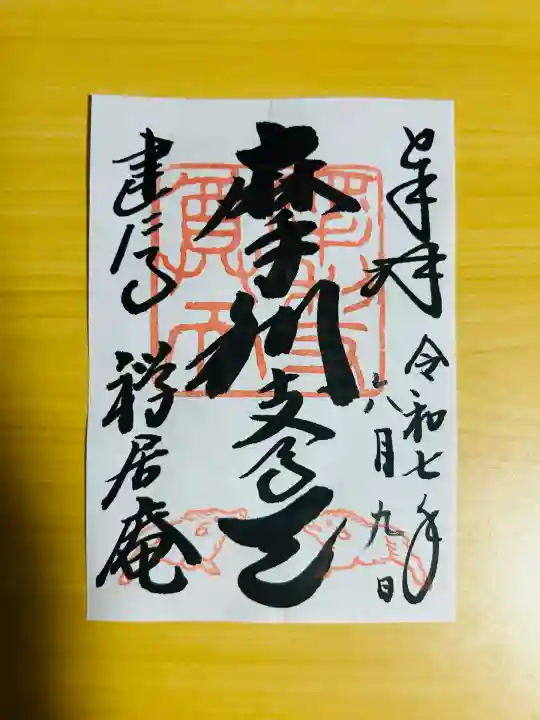 奉拝
令和七年
六月九日
摩利支尊天
建仁寺
禅居庵